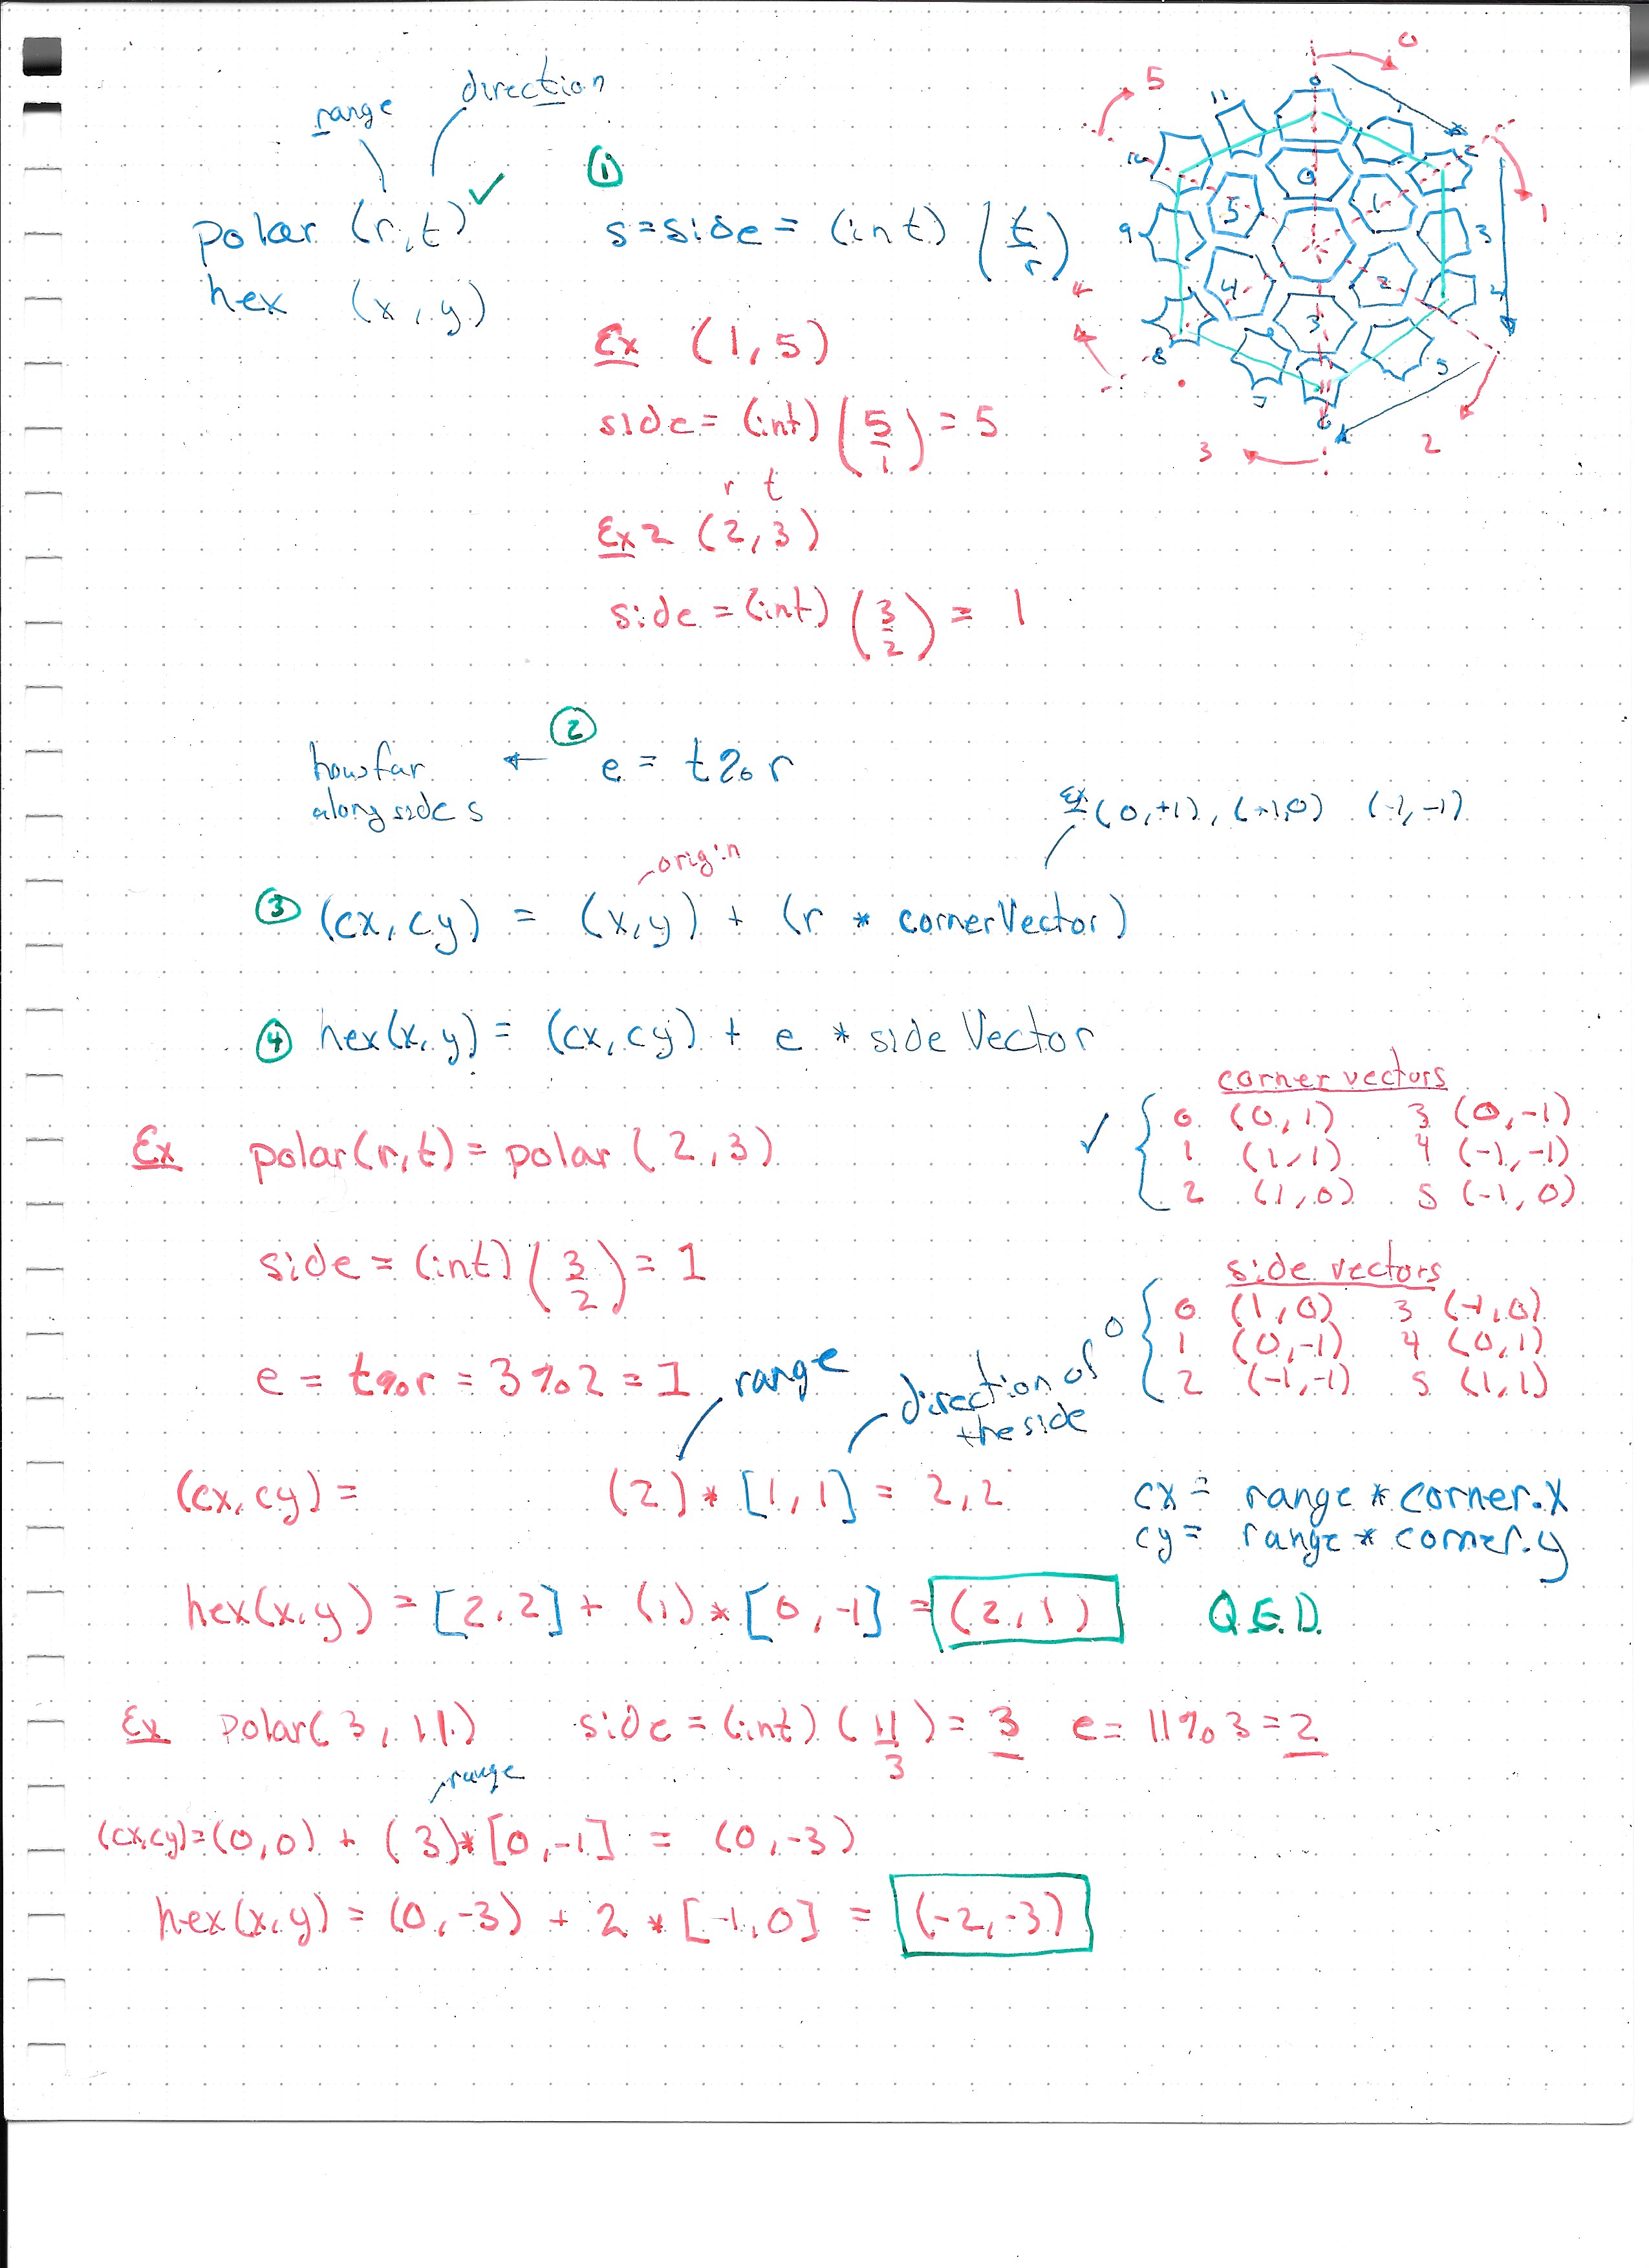 range direction
polar (r,t) ✓
hex (x,y)
① s = side = (int) (t/r)
Ex (1,5)
side = (int) (5/1) = 5
r t
Ex 2 (2,3)
side = (int) (3/2) = 1
0
5
0
11
1
2
10
0
5
1
9
3
1
4
2
4
3
8
5
7
6
4
3
2
② e = t % r
how far
along side s
Ex (0,+1), (+1,0) (-1,-1)
origin
③ (cx, cy) = (x,y) + (r * cornerVector)
④ hex(x,y) = (cx, cy) + e * side Vector
corner vectors
0 (0,1) 3 (0,-1)
✓ 1 (1,1) 4 (-1,-1)
2 (1,0) 5 (-1,0)
Ex polar(r,t) = polar (2,3)
side = (int) (3/2) = 1
side vectors
0 (1,0) 3 (-1,0)
1 (0,-1) 4 (0,1)
2 (-1,-1) 5 (1,1)
e = t%r = 3%2 = 1
range
direction of
the side
(cx,cy) = (2) * [1,1] = 2,2
cx = range * corner.x
cy = range * corner.y
hex(x,y) = [2,2] + (1) * [0,-1] = (2,1) Q.E.D.
Ex polar(3,11) side = (int) (11/3) = 3 e = 11%3 = 2
range
(cx,cy) = (0,0) + (3) * [0,-1] = (0,-3)
hex(x,y) = (0,-3) + 2 * [-1,0] = (-2,-3)